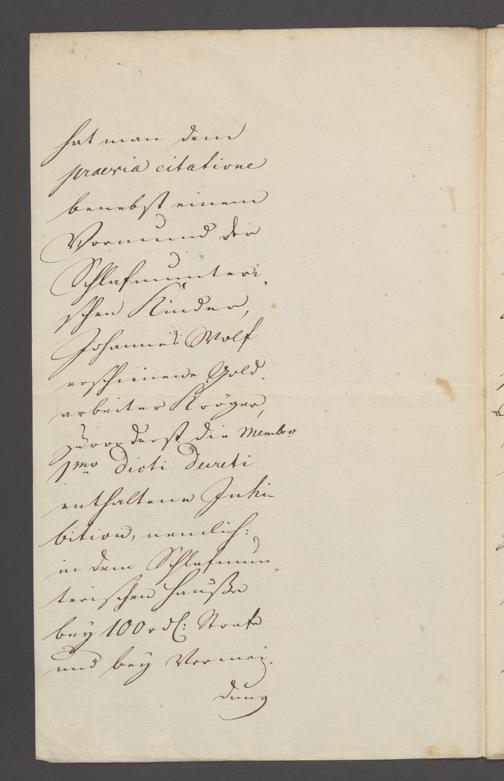 hat man dem
praevia citatione
benebst einem
Vormund der
Schlafmunteri-
schen Kinder,
Johannes Wolf
erschienene Gold-
arbeiter Kröger,
zuvorderst die Membro
1mo dicti Decreti
enthaltene Inhi-
bition, nemlich:
in dem Schlafmun-
terischen Hauße
bey 100 rdl: Strafe
und bey Vermei-
dung